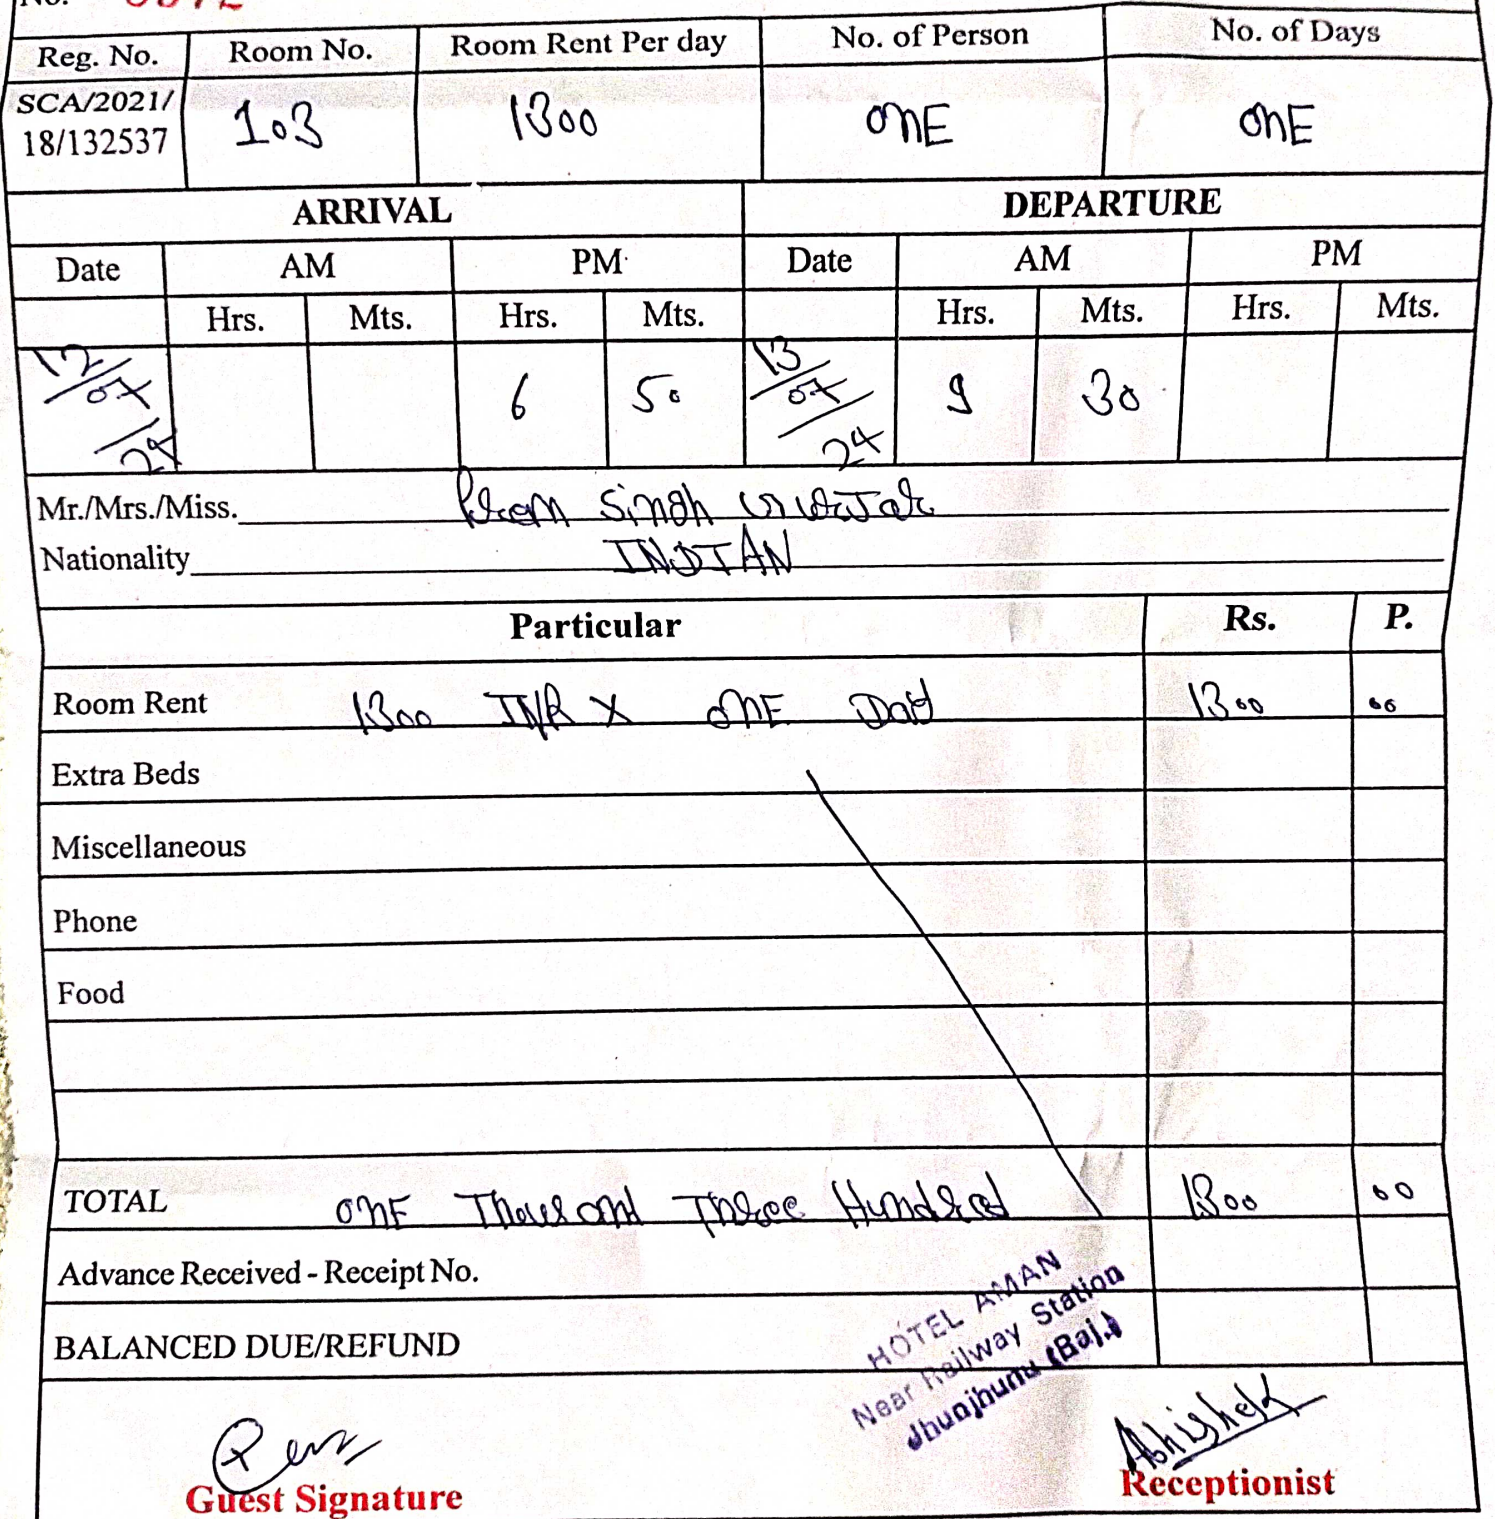 No.
Reg. No. Room No. Room Rent Per day No. of Person No. of Days
SCA/2021/
18/132537 103 1300 ONE ONE
ARRIVAL DEPARTURE
Date AM PM Date AM PM
Hrs. Mts. Hrs. Mts. Hrs. Mts. Hrs. Mts.
12/07/24 6 50 13/07/24 9 30
Mr./Mrs./Miss. Prem Singh
Nationality INDIAN
Particular Rs. P.
Room Rent 1300 INR X ONE Day 1300 00
Extra Beds
Miscellaneous
Phone
Food
TOTAL ONE Thousand Three Hundred 1300 00
Advance Received - Receipt No.
BALANCED DUE/REFUND
HOTEL AMAN
Near Railway Station
Jhunjhunu (Raj.)
Abhishek
Guest Signature Receptionist